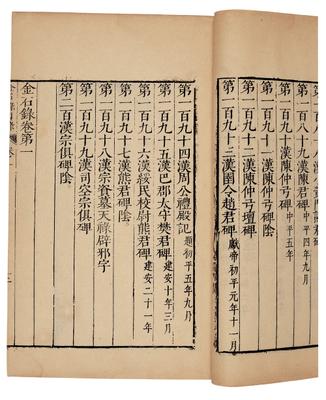 第一百八十九漢陳君碑中平四年九月
第一百九十漢陳仲弓碑中平五年
第一百九十一漢陳仲弓壇碑
第一百九十二漢陳仲弓碑陰
第一百九十三漢圉令趙君碑獻帝初平元年十一月
第一百九十四漢周公禮殿記題初平五年九月
第一百九十五漢巴郡太守樊君碑建安十年三月
第一百九十六漢綏民校尉熊君碑建安二十一年
第一百九十七漢熊君碑陰
第一百九十八漢宗資墓天祿辟邪字
第一百九十九漢司空宗俱碑
第二百漢宗俱碑陰
金石錄卷第一